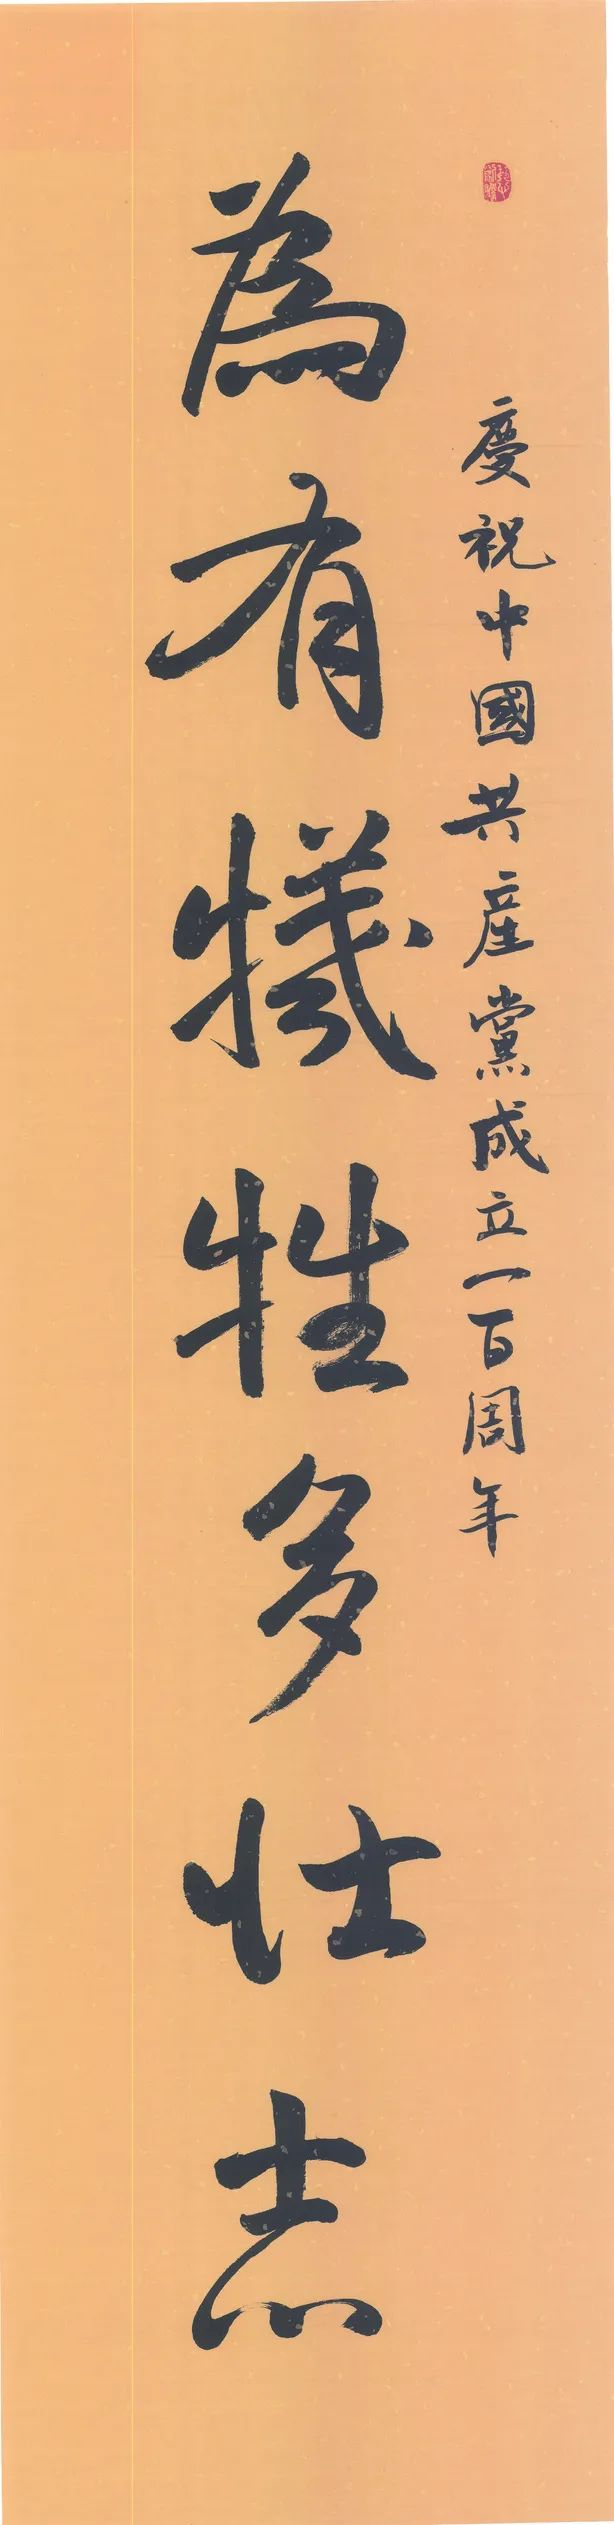 慶祝中國共産黨成立一百周年
為有犧牲多壯志